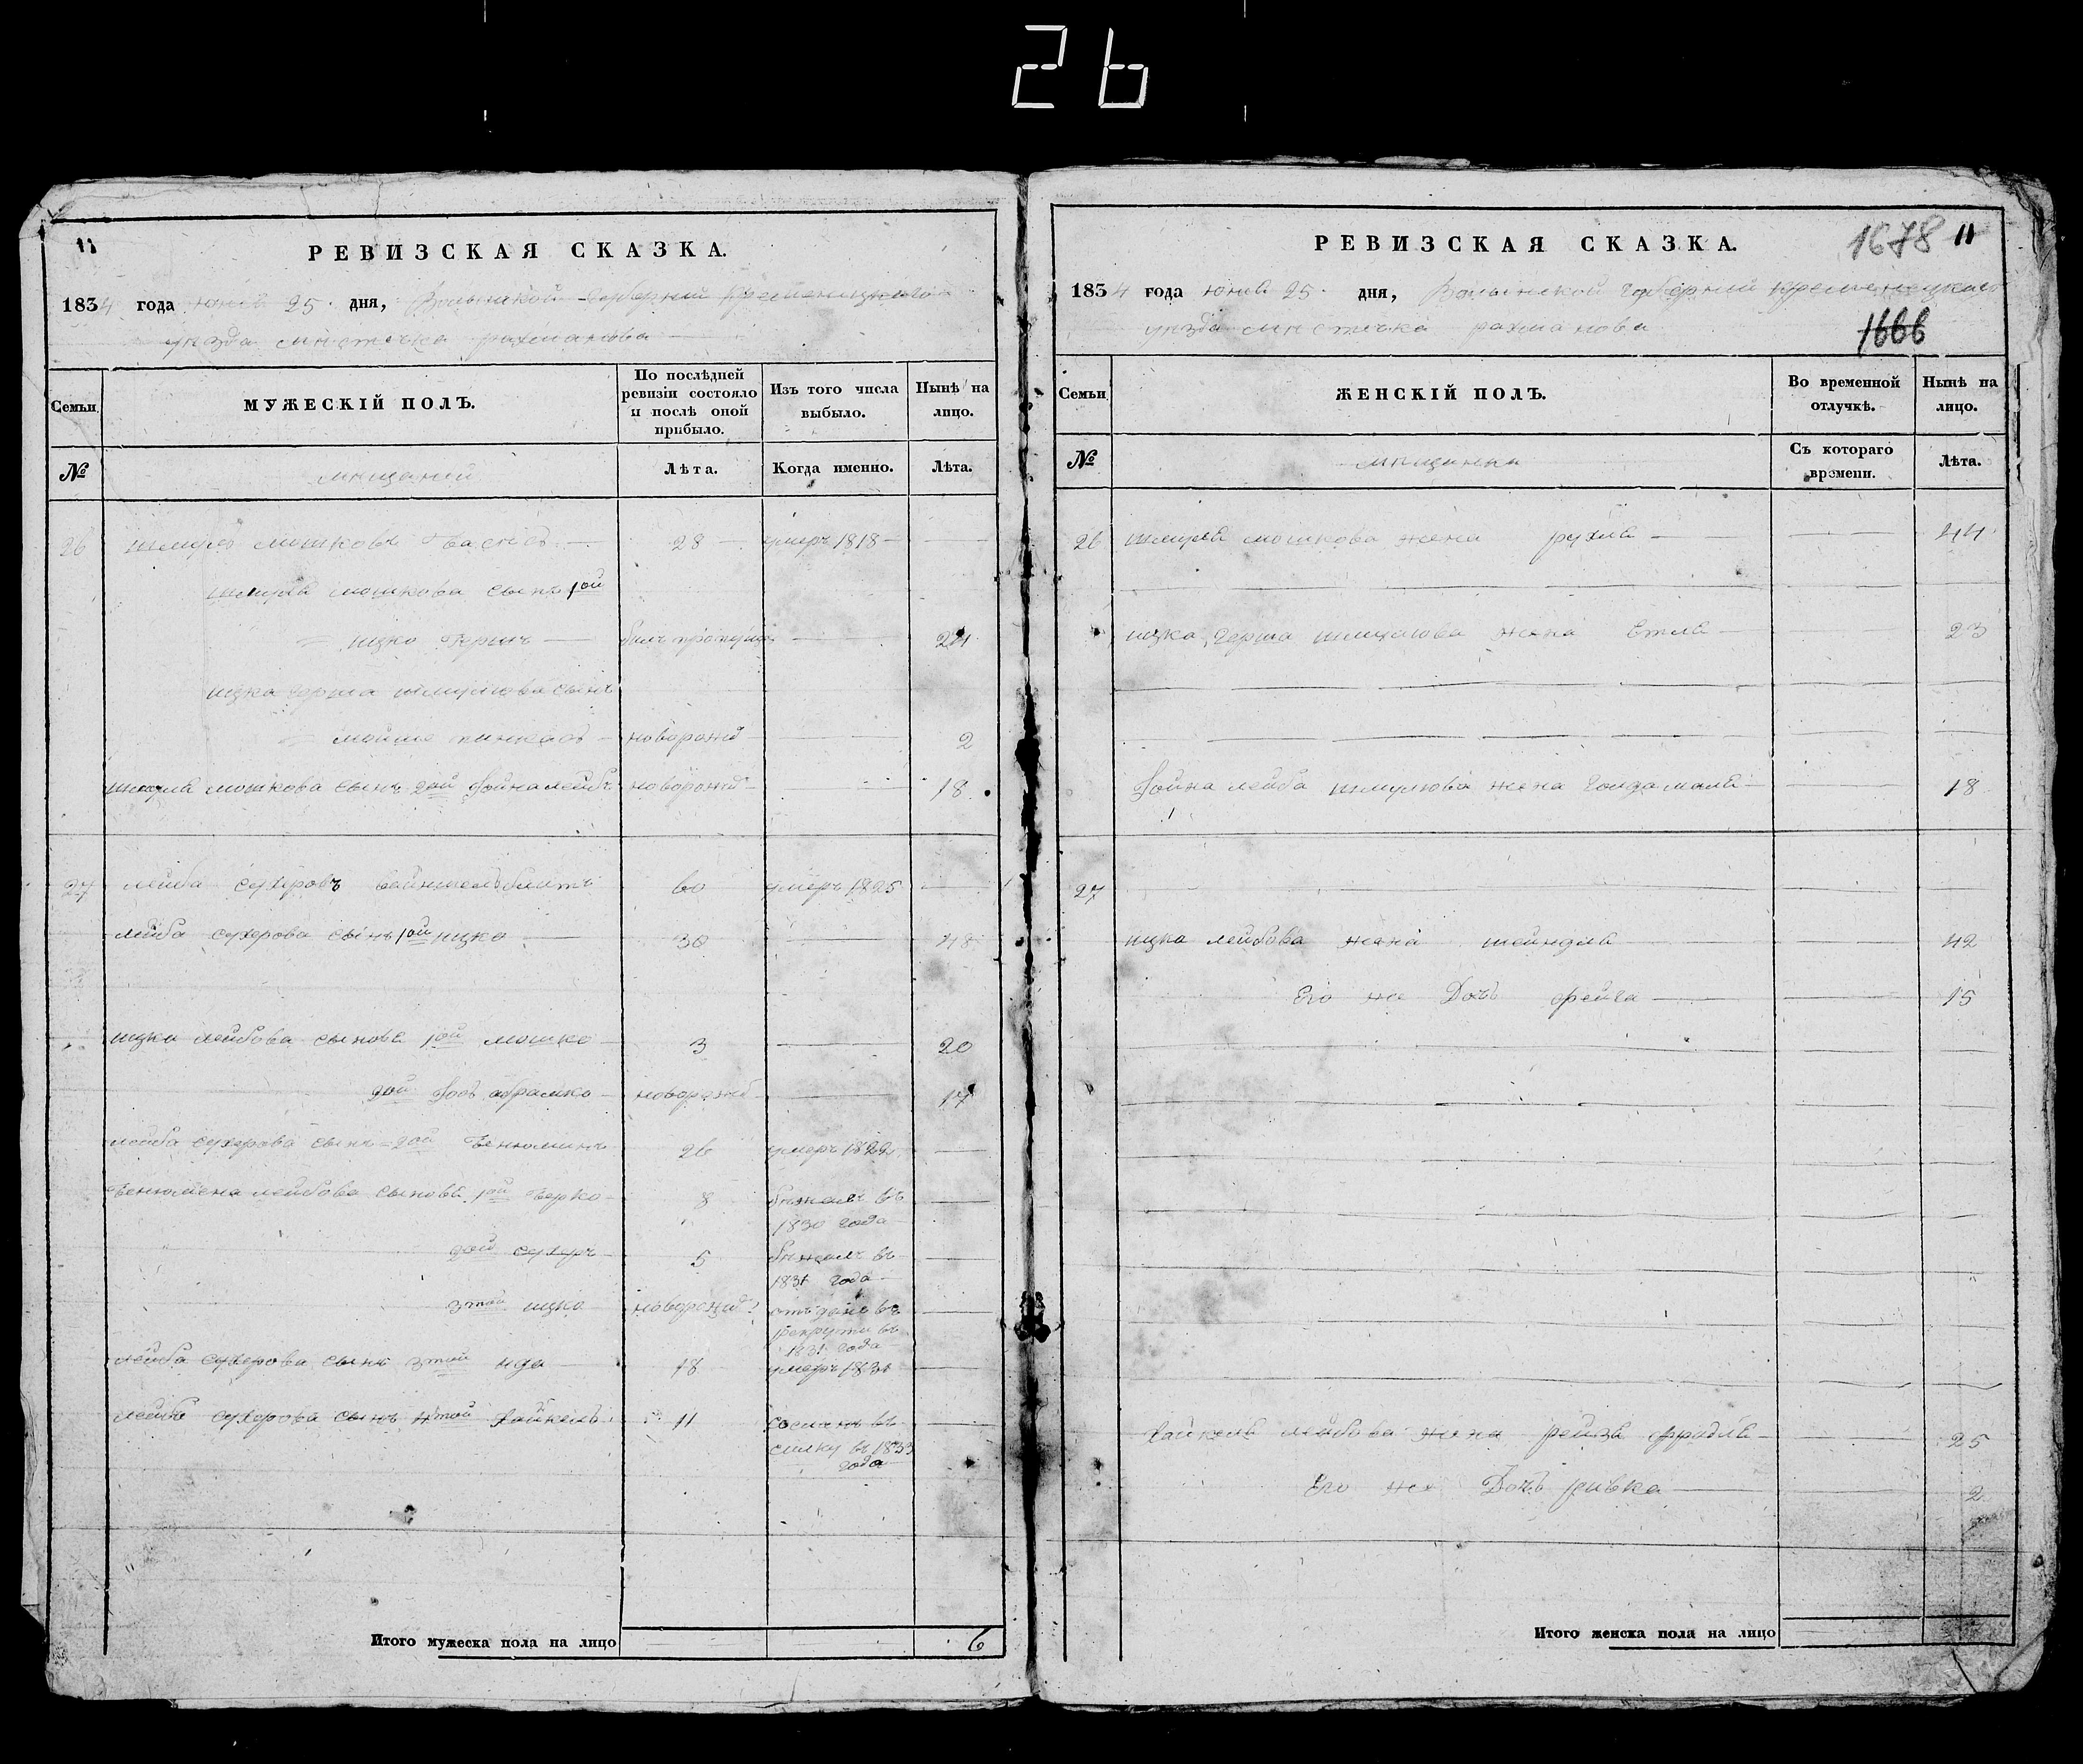 26
11
РЕВИЗСКАЯ СКАЗКА.
1834 года юня 25 дня, Волынской Губерний Кременецкаго
уѣзда мѣстечка рахманова
Семьи
МУЖЕСКІЙ ПОЛЪ.
По послѣдней ревизіи состояло и послѣ оной прибыло.
Изъ того числа выбыло.
Нынѣ на лицо.
№
мѣщаний
Лѣта.
Когда именно.
Лѣта.
26 шмуль мошковъ 28 умеръ 1818
шмуля мошкова сынъ 1ой
ицко Гершъ былъ пропущ 24
ицка герша шмулюва сынъ
мойше пинкасъ новорожд 2
шмуля мошкова сынъ 2ой Фойна лейбъ новорожд 18
27 лейба сухеровъ 60 умеръ 1825
лейба сухерова сынъ 1ой ицко 30 48
ицка лейбова сыновя 1ой мошко 3 20
2ой абрамко новорожд 17
лейба сухерова сынъ 2ой Бенюминъ 26 умеръ 1822
Бенюмена лейбова сыновя 1ой берко 8 бѣжалъ въ
1830 года
2ой сухеръ 5 бѣжалъ въ
1831 года
3той ицко новорожд отъдано въ
рекруты въ
1831 года
лейба сухерова сынъ 3той 18 умеръ 1831
лейба сухерова сынъ 4той хайкель 11 сосланъ въ
силку въ 1833
года
Итого мужеска пола на лицо 6
РЕВИЗСКАЯ СКАЗКА.
1678 11
1834 года юня 25 дня, Волынской Губерний Кременецкаго
уѣзда мѣстечка рахманова
1666
Семьи
ЖЕНСКІЙ ПОЛЪ.
Во временной отлучкѣ.
Нынѣ на лицо.
№
мѣщанки
Съ котораго времени.
Лѣта.
26 шмуля мошкова жена рухля 44
ицка герша шмулюва жена Етля 23
Фойна лейба шмулюва жена Голда маля 18
27
ицка лейбова жена шейндля 42
Его же Дочь фейга 15
хайкеля лейбова жена рейзя фрадля 25
Его же Дочъ ривка 2
Итого женска пола на лицо